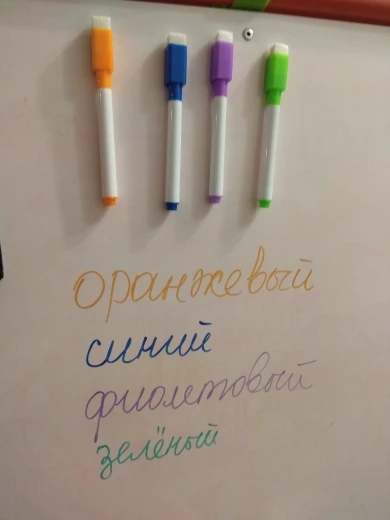 оранжевый
синий
фиолетовый
зелёный